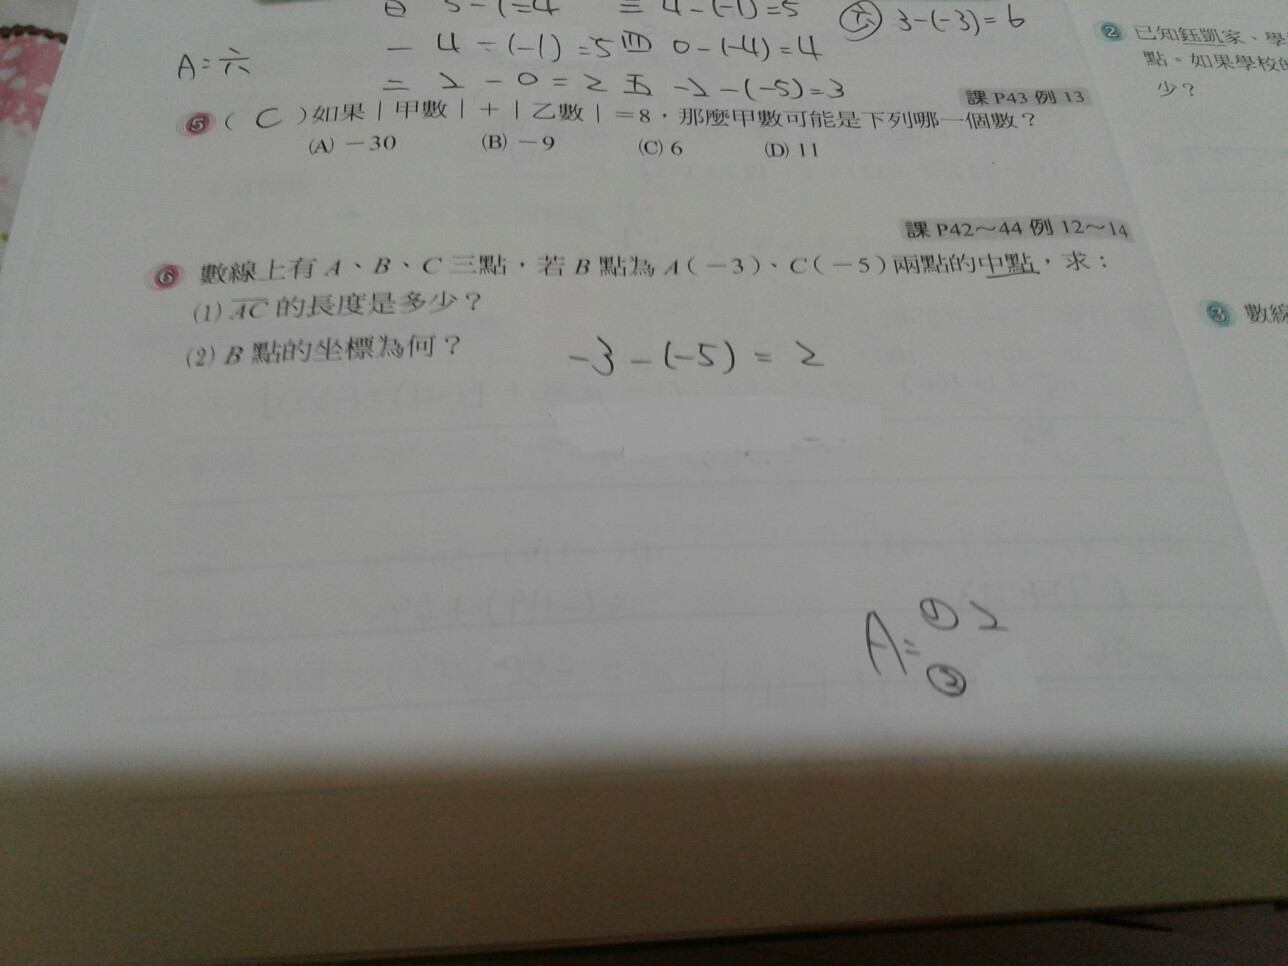 日 5-1=4 三 4-(-1)=5 六 3-(-3)=6
一 4-(-1)=5 四 0-(-4)=4
A=六
二 2-0=2 五 -2-(-5)=3
課P43 例13
5 ( C )如果|甲數|+|乙數|=8,那麼甲數可能是下列哪一個數?
(A) -30 (B) -9 (C) 6 (D) 11
課P42~44 例12~14
6 數線上有A、B、C三點,若B點為A(-3)、C(-5)兩點的中點,求:
(1) AC的長度是多少?
(2) B點的坐標為何?
-3-(-5)=2
A= ① 2
②
2 已知鈺凱家、學
點。如果學校的
少?
3 數線